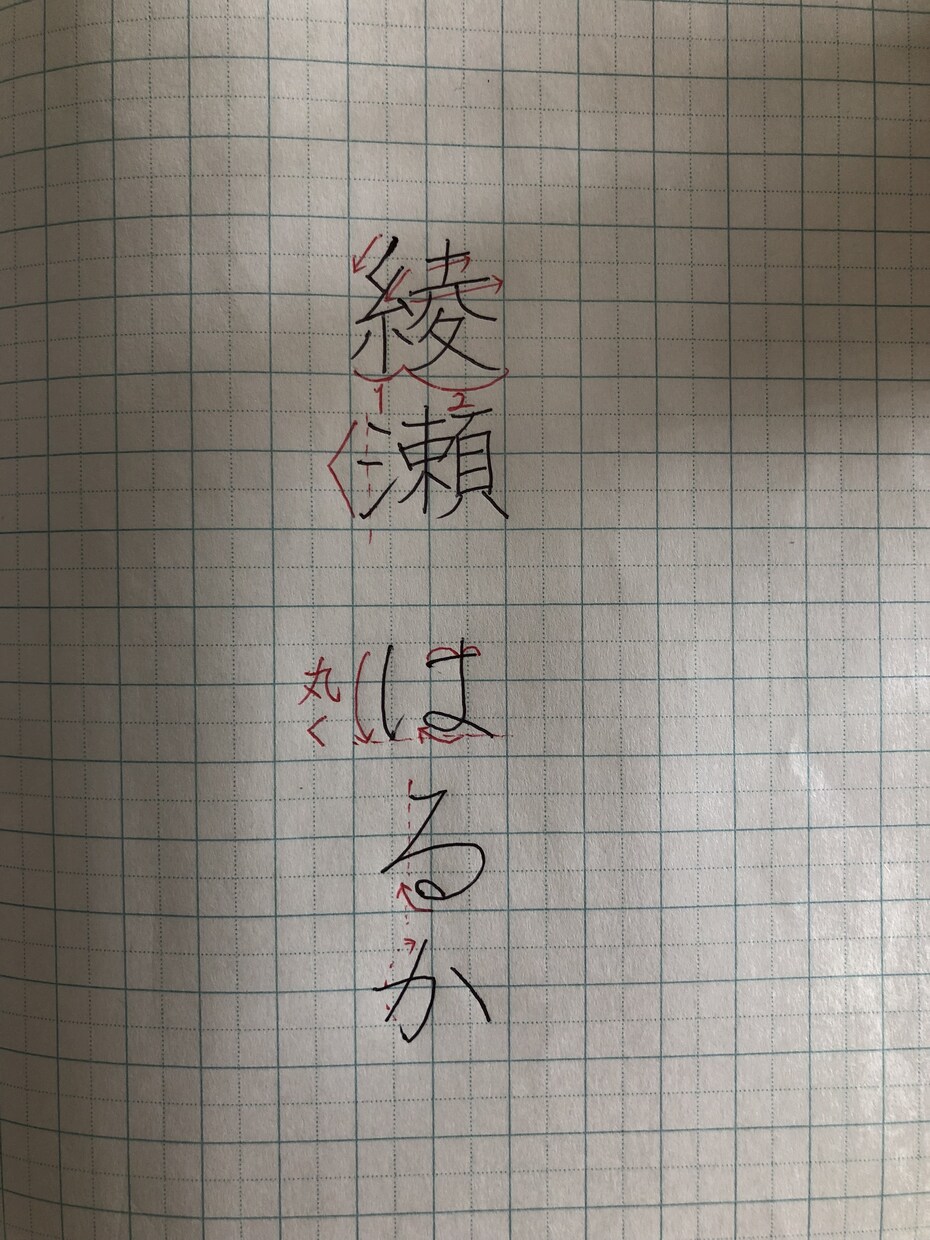 綾瀬 はるか
1 2
丸く